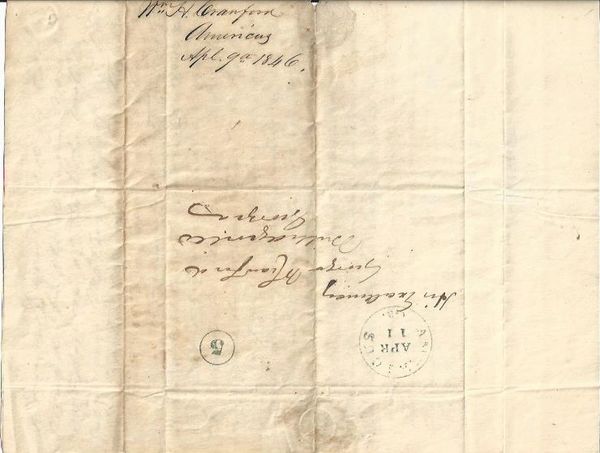 Wm H. Crawford
Americus
Apl. 9th 1846.
His Excellency
George W Crawford
Milledgeville
Georgia
AMERICUS
Ga.
APR
11
5